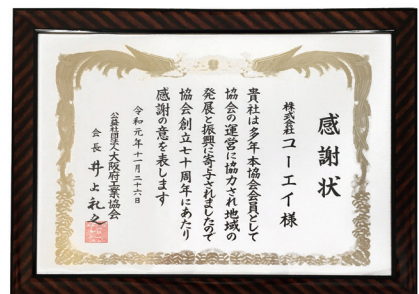 感謝状
株式会社コーエイ様
貴社は多年本協会会員として
協会の運営に協力され地域の
発展と振興に寄与されましたので
協会創立七十周年にあたり
感謝の意を表します
令和元年十一月二十六日
公益社団法人大阪府工業協会
会長 井上礼之